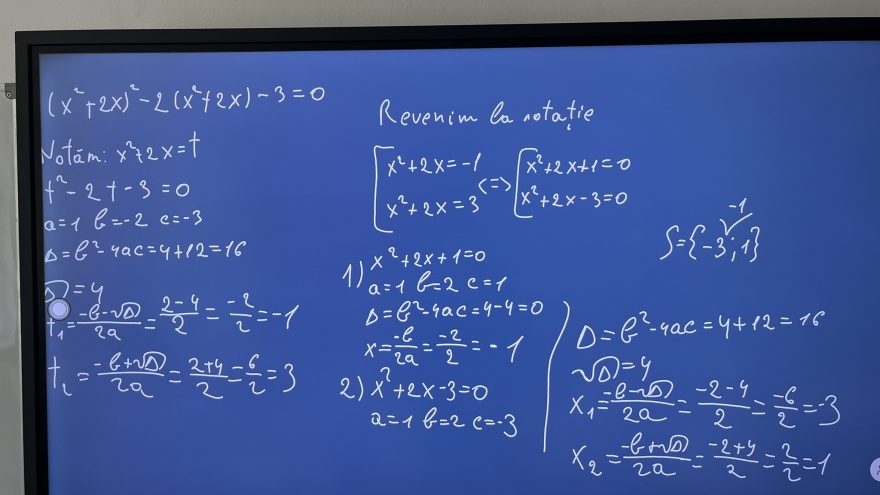 (x²+2x)²-2(x²+2x)-3=0
Notăm: x²+2x=t
t²-2t-3=0
a=1 b=-2 c=-3
Δ=b²-4ac=4+12=16
√Δ=4
t₁=(-b-√Δ)/2a=(2-4)/2=-2/2=-1
t₂=(-b+√Δ)/2a=(2+4)/2=6/2=3
Revenim la notație
[x²+2x=-1 <=> [x²+2x+1=0
[x²+2x=3 [x²+2x-3=0
1) x²+2x+1=0
a=1 b=2 c=1
Δ=b²-4ac=4-4=0
x=-b/2a=-2/2=-1
2) x²+2x-3=0
a=1 b=2 c=-3
Δ=b²-4ac=4+12=16
√Δ=4
x₁=(-b-√Δ)/2a=(-2-4)/2=-6/2=-3
x₂=(-b+√Δ)/2a=(-2+4)/2=2/2=1
-1
S={-3;1}